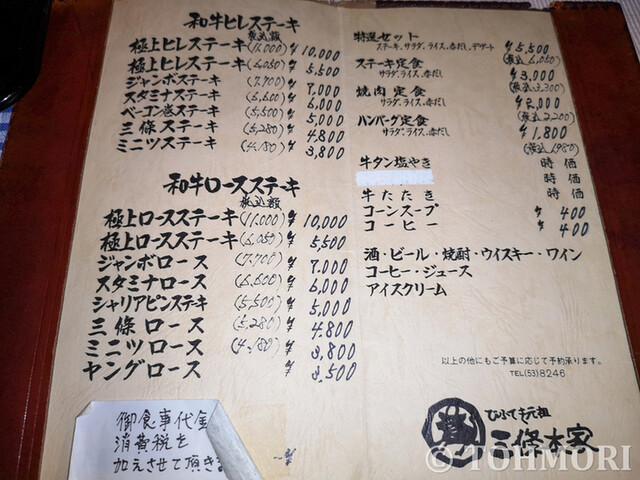 和牛ヒレステーキ
税込額
極上ヒレステーキ (11,000) ¥ 10,000
極上ヒレステーキ (6,050) ¥ 5,500
ジャンボステーキ (7,700) ¥ 7,000
スタミナステーキ (6,600) ¥ 6,000
ベーコン巻ステーキ (5,500) ¥ 5,000
三條ステーキ (5,280) ¥ 4,800
ミニツステーキ (4,180) ¥ 3,800
和牛ロースステーキ
税込額
極上ロースステーキ (11,000) ¥ 10,000
極上ロースステーキ (6,050) ¥ 5,500
ジャンボロース (7,700) ¥ 7,000
スタミナロース (6,600) ¥ 6,000
シャリアピンステーキ (5,500) ¥ 5,000
三條ロース (5,280) ¥ 4,800
ミニツロース (4,180) ¥ 3,800
ヤングロース ¥ 3,500
御食事代金
消費税を
加えさせて頂きま
特選セット ¥ 5,500
ステーキ、サラダ、ライス、赤だし、デザート (税込 6,050)
ステーキ定食 ¥ 3,000
サラダ、ライス、赤だし (税込 3,300)
焼肉定食 ¥ 2,000
サラダ、ライス、赤だし (税込 2,200)
ハンバーグ定食 ¥ 1,800
サラダ、ライス、赤だし (税込 1,980)
牛タン塩やき 時価
時価
牛たたき 時価
コーンスープ ¥ 400
コーヒー ¥ 400
酒・ビール・焼酎・ウイスキー・ワイン
コーヒー・ジュース
アイスクリーム
以上の他にもご予算に応じて予約承ります。
TEL(53)8246
びふてき元祖
三條本家
© TOHMORI